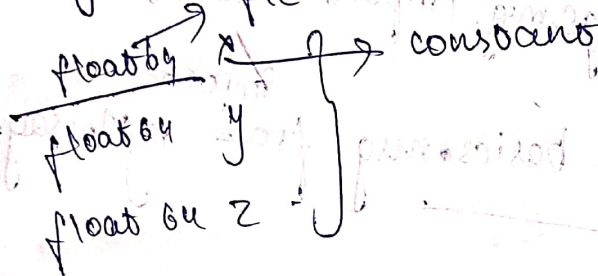 float64 x } → constant
float64 y
float64 z